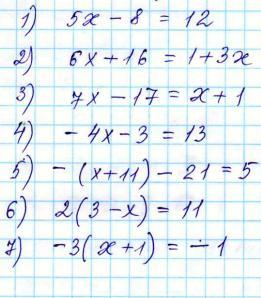 1) 5x - 8 = 12
2) 6x + 16 = 1 + 3x
3) 7x - 17 = x + 1
4) - 4x - 3 = 13
5) - (x + 11) - 21 = 5
6) 2(3 - x) = 11
7) -3(x + 1) = -1